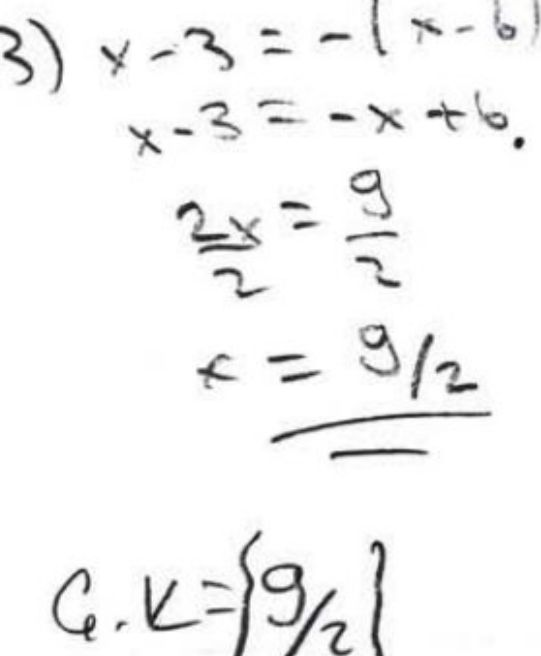 3) x - 3 = -(x - 6)
x - 3 = -x + 6.
2x/2 = 9/2
x = 9/2
Ç.K = {9/2}